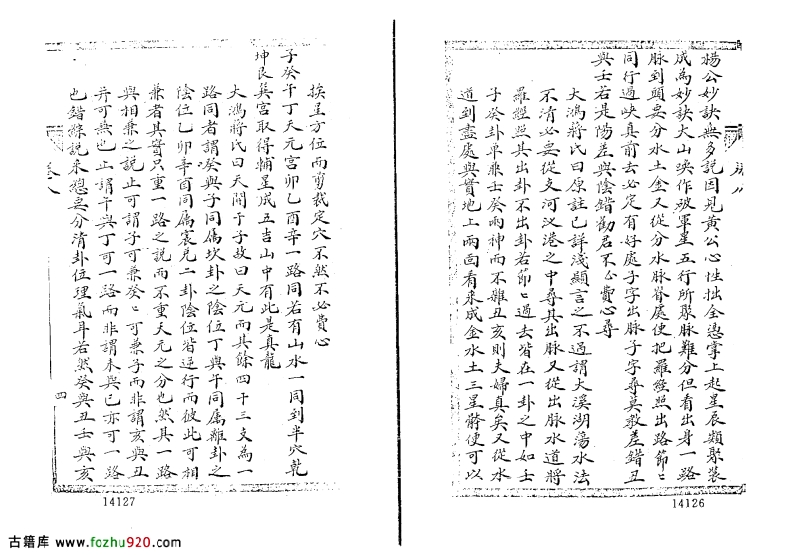 楊公妙訣無多說因見黃公心性拙全憑掌上起星辰類聚裝
成為妙訣大山喚作破軍星五行所聚脉難分但看出身一路
脉到頭要分水土金又從分水脉脊處便把羅經照出路節〻
同行過峽真前去必定有好處子字出脉子字尋莫教差錯丑
與壬若是陽差與陰錯勸君不必費心尋
大鴻蔣氏曰原註已詳淺顯言之不過謂大溪湖蕩水法
不清必要從支河汊港之中尋其出脉又從出脉水道將
羅經照其出卦不出卦若節〻過去皆在一卦之中如壬
子癸卦單乘壬癸兩神而不雜丑亥則夫婦真矣又從水
道到盡處與實地上兩面看來成金水土三星骵便可以
挨星方位而剪裁定穴不然不必費心
子癸午丁天元宮卯乙酉辛一路同若有山水一同到半穴乾
坤艮巽宮取得輔星成五吉山中有此是真龍
大鴻蔣氏曰天開于子故曰天元而其餘四十三支為一
路同者謂癸與子同屬坎卦之陰位丁與午同屬離卦之
陰位乙卯辛酉同屬震兌二卦陰位皆逆行而彼此可相
兼者其實只重一路之說而不重天元之分也然其一路
與相兼之說止可謂子可兼癸〻可兼子而非謂亥與丑
亦可兼也止謂午與丁可一路而非謂未與巳亦可一路
也錯綜說來總要分清卦位理氣耳若然癸與丑壬與亥
卷八
四
14127
14126
古籍库 www.fozhu920.com